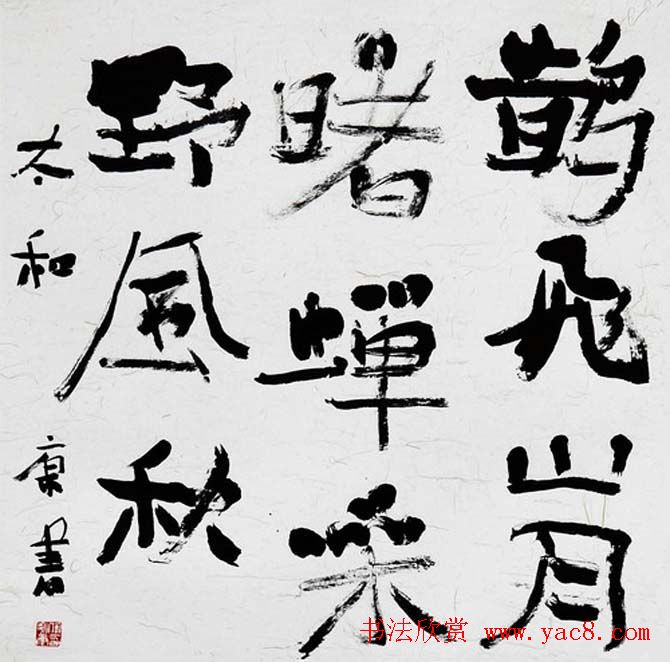 鹊飞山月
曙蝉噪
野风秋
太和 康書
书法欣赏 www.yac8.com